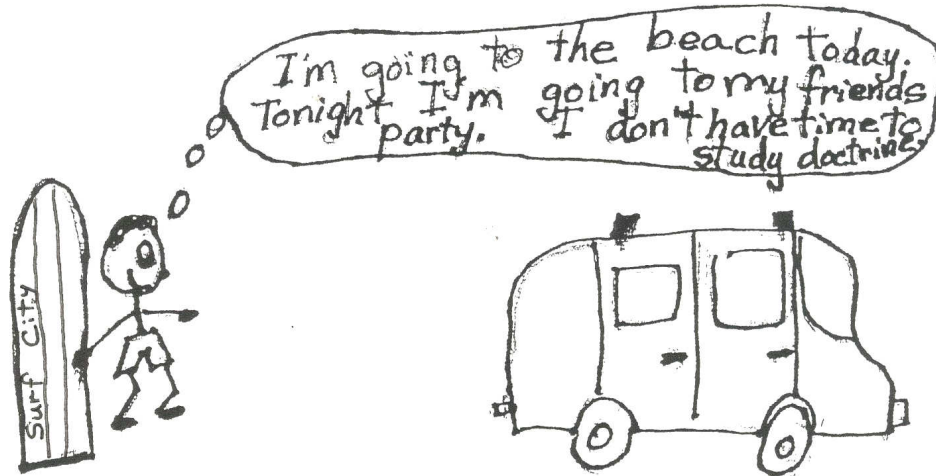 I'm going to the beach today.
Tonight I'm going to my friends
party. I don't have time to
study doctrine.
Surf City